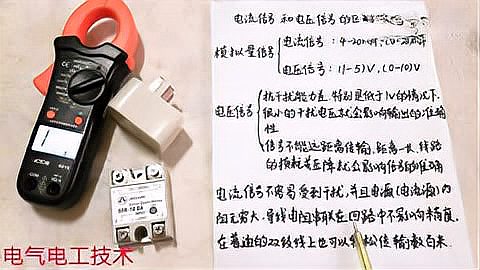 电流信号和电压信号的区
模拟量信号
电流信号：4-20mA，
电压信号：(1-5)V，(0-10)V
电压信号
抗干扰能力差，特别是低于1V的情况下，
很小的干扰电压就会影响输出的准确
性
信号不能远距离传输，距离一长，线路
的损耗压降就会影响信号的准确
电流信号不容易受到干扰，并且电流源(电流源)内
阻无穷大，导线电阻串联在回路中不影响精度，
在普通的双绞线上也可以轻松传输数百米。
SSR-10 DA
电气电工技术